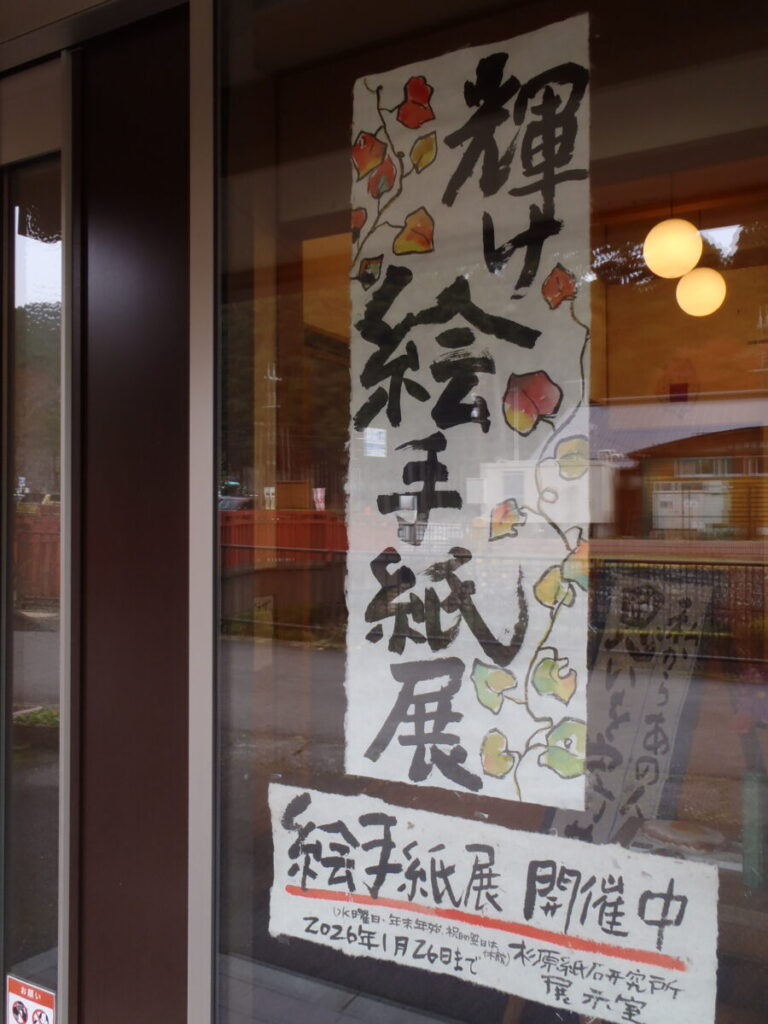 輝け
絵手紙展
絵手紙展 開催中
(水曜日、年末年始、祝日の翌日は休館)
2026年1月26日まで
杉原紙研究所
展示室
お願い